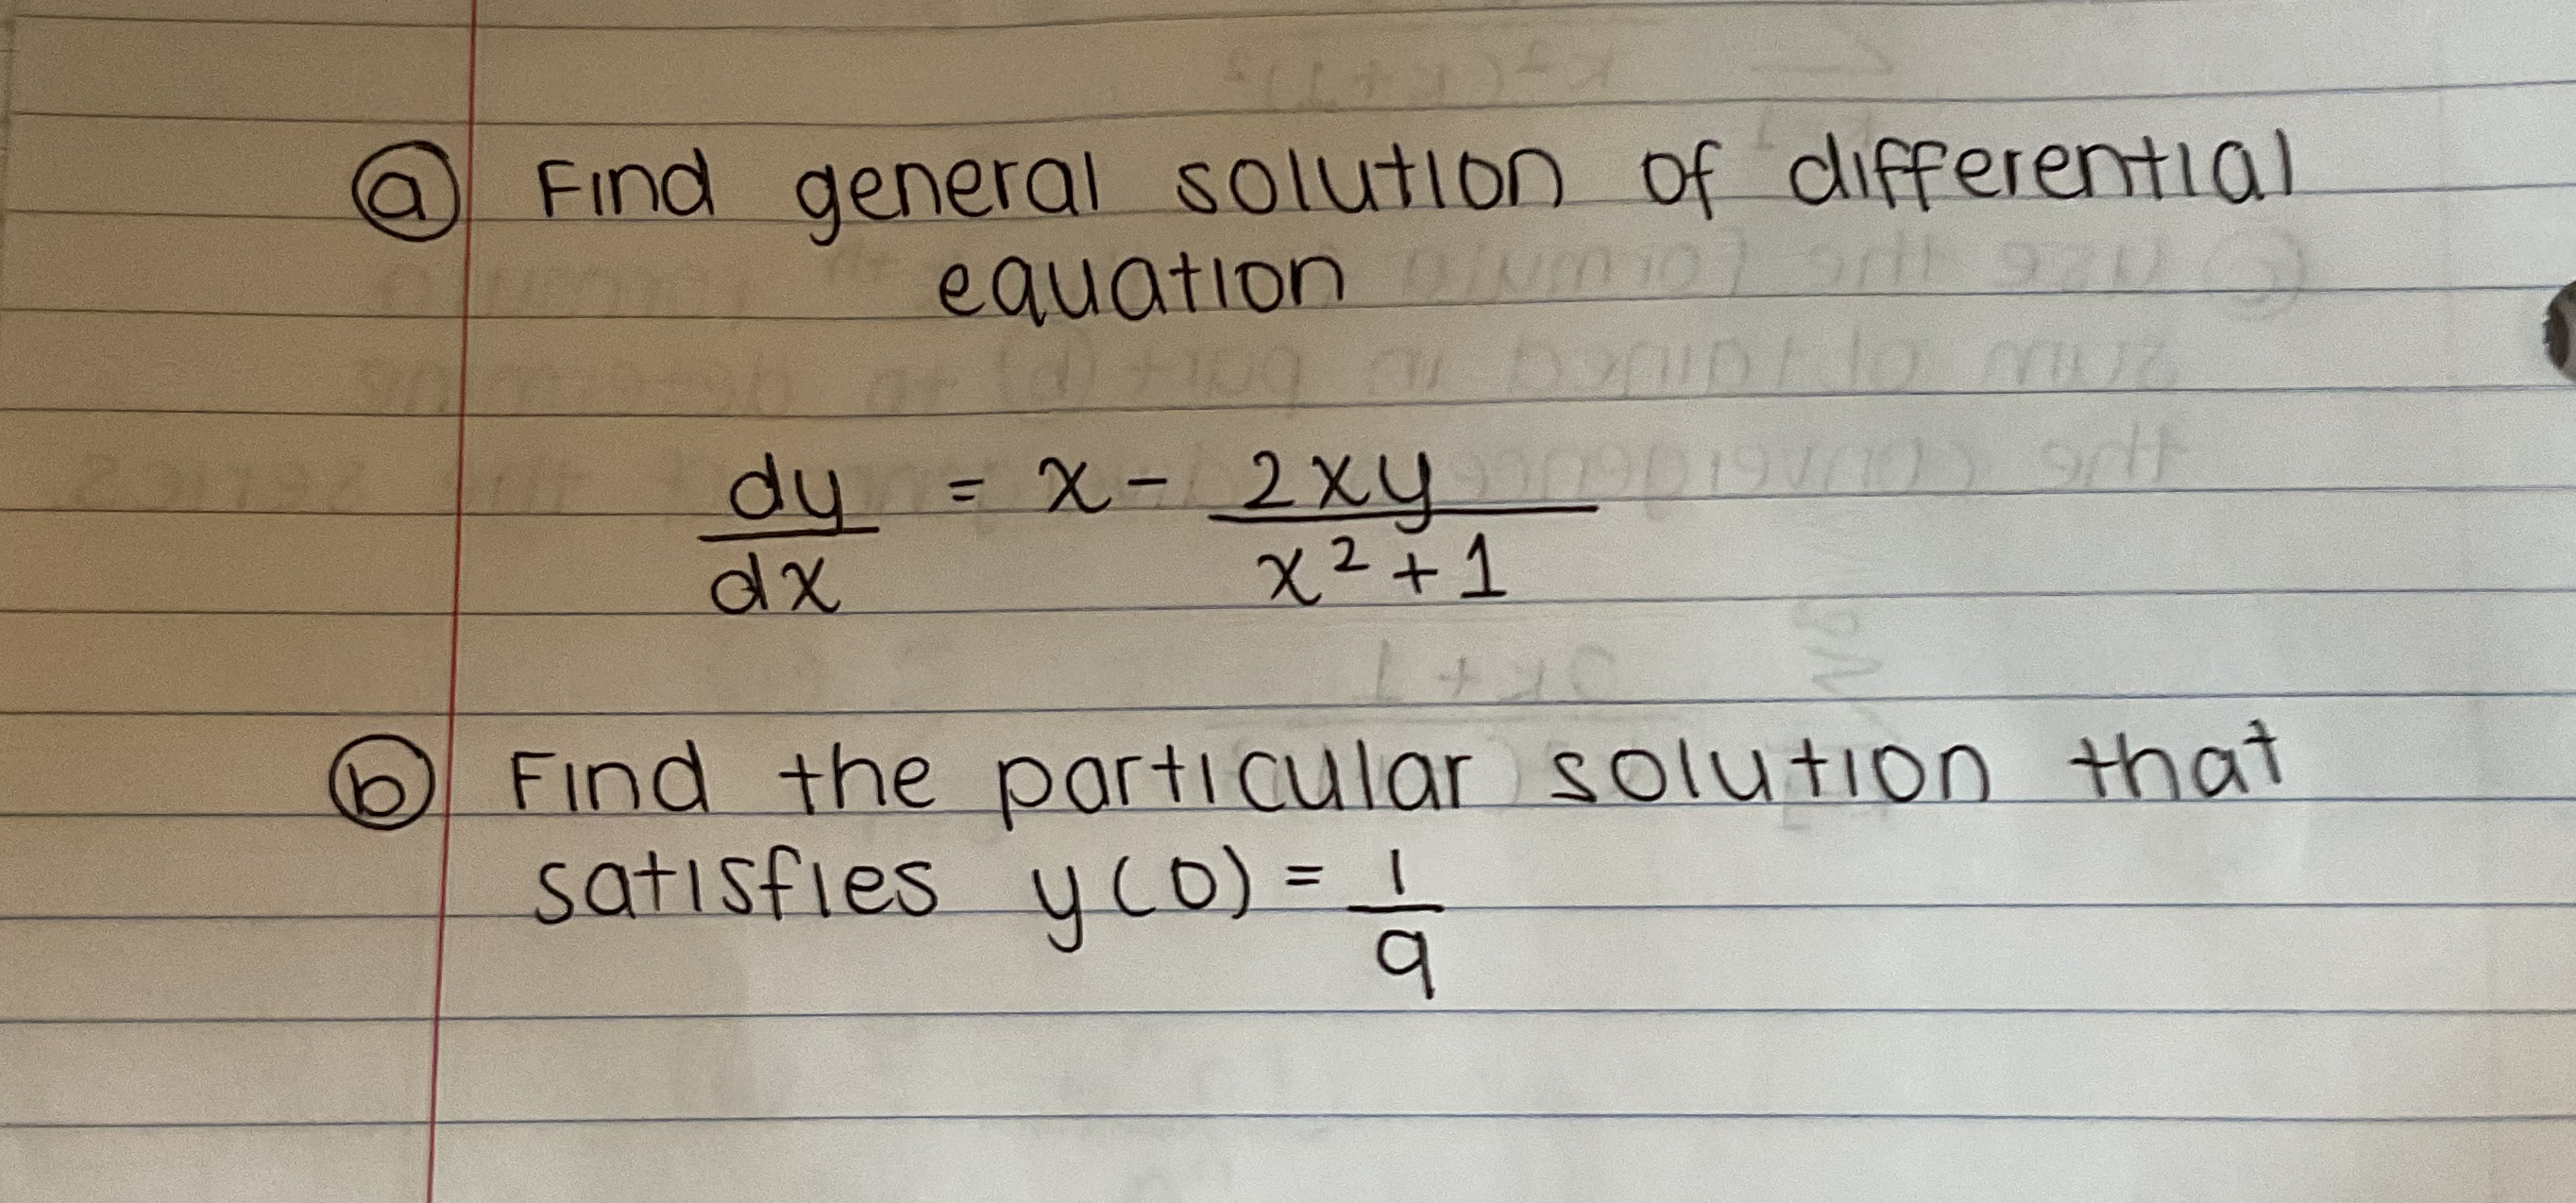 (a) Find general solution of differential
equation
dy/dx = x - 2xy/(x² + 1)
(b) Find the particular solution that
satisfies y(0) = 1/9